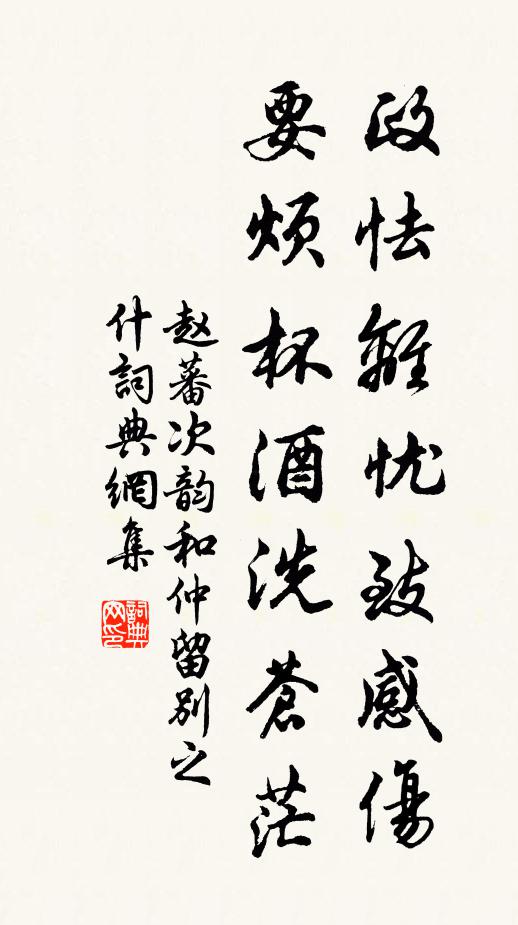 政怯離忧致感傷
要煩杯酒洗蒼茫
赵蕃次韵和仲留別之
什詞典網集
詞典网印